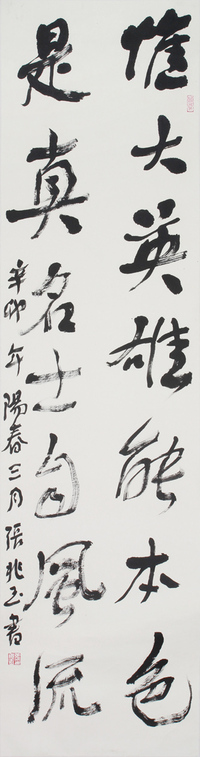 惟大英雄能本色
是真名士自風流
辛卯年陽春三月張兆玉書